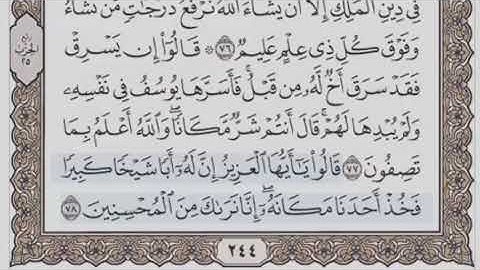 فِى دِينِ ٱلْمَلِكِ إِلَّآ أَن يَشَآءَ ٱللَّهُ نَرْفَعُ دَرَجَٰتٍ مَّن نَّشَآءُ
وَفَوْقَ كُلِّ ذِى عِلْمٍ عَلِيمٌ ٧٦ ۞ قَالُوٓا۟ إِن يَسْرِقْ
فَقَدْ سَرَقَ أَخٌ لَّهُۥ مِن قَبْلُ فَأَسَرَّهَا يُوسُفُ فِى نَفْسِهِۦ
وَلَمْ يُبْدِهَا لَهُمْ قَالَ أَنتُمْ شَرٌّ مَّكَانًا وَٱللَّهُ أَعْلَمُ بِمَا
تَصِفُونَ ٧٧ قَالُوا۟ يَٰٓأَيُّهَا ٱلْعَزِيزُ إِنَّ لَهُۥٓ أَبًا شَيْخًا كَبِيرًا
فَخُذْ أَحَدَنَا مَكَانَهُۥٓ إِنَّا نَرَىٰكَ مِنَ ٱلْمُحْسِنِينَ ٧٨
٢٤٤
ربع
الحزب
٢٥